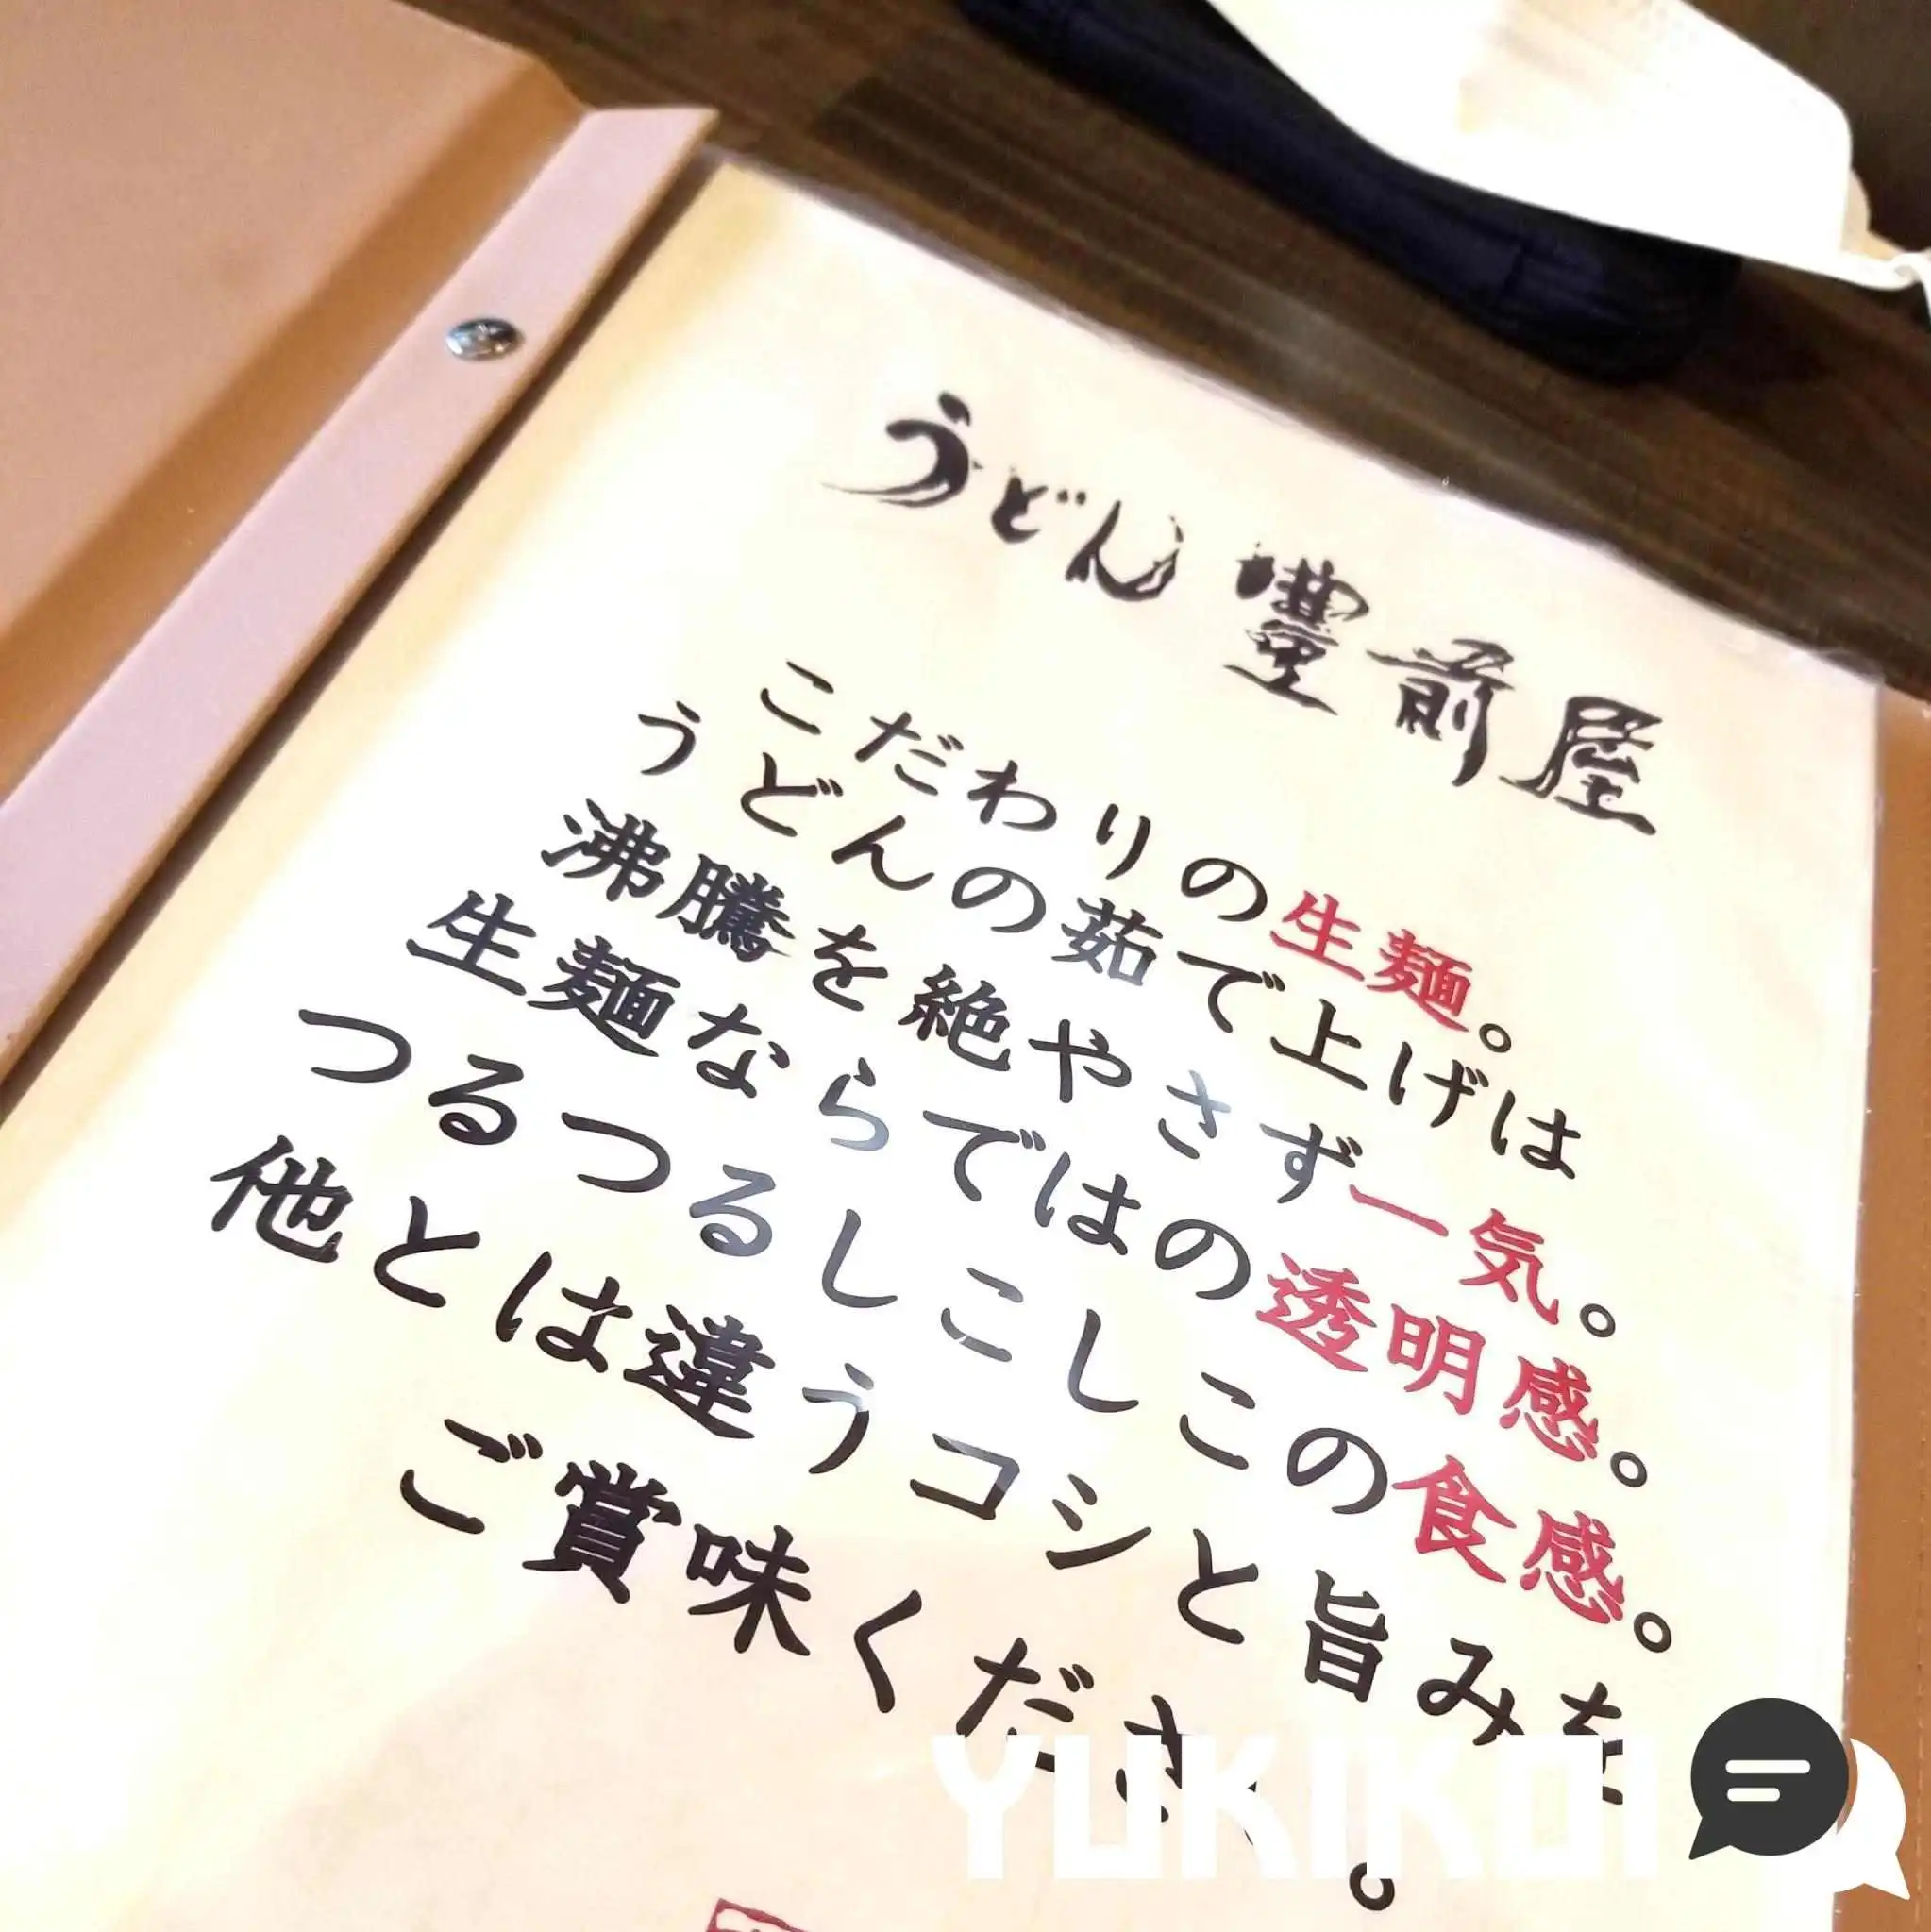 うどん 豊前屋
こだわりの生麺。
うどんの茹で上げは
沸騰を絶やさず一気。
生麺ならではの透明感。
つるつるしこしこの食感。
他とは違うコシと旨みを
ご賞味ください。
YUKIKOI